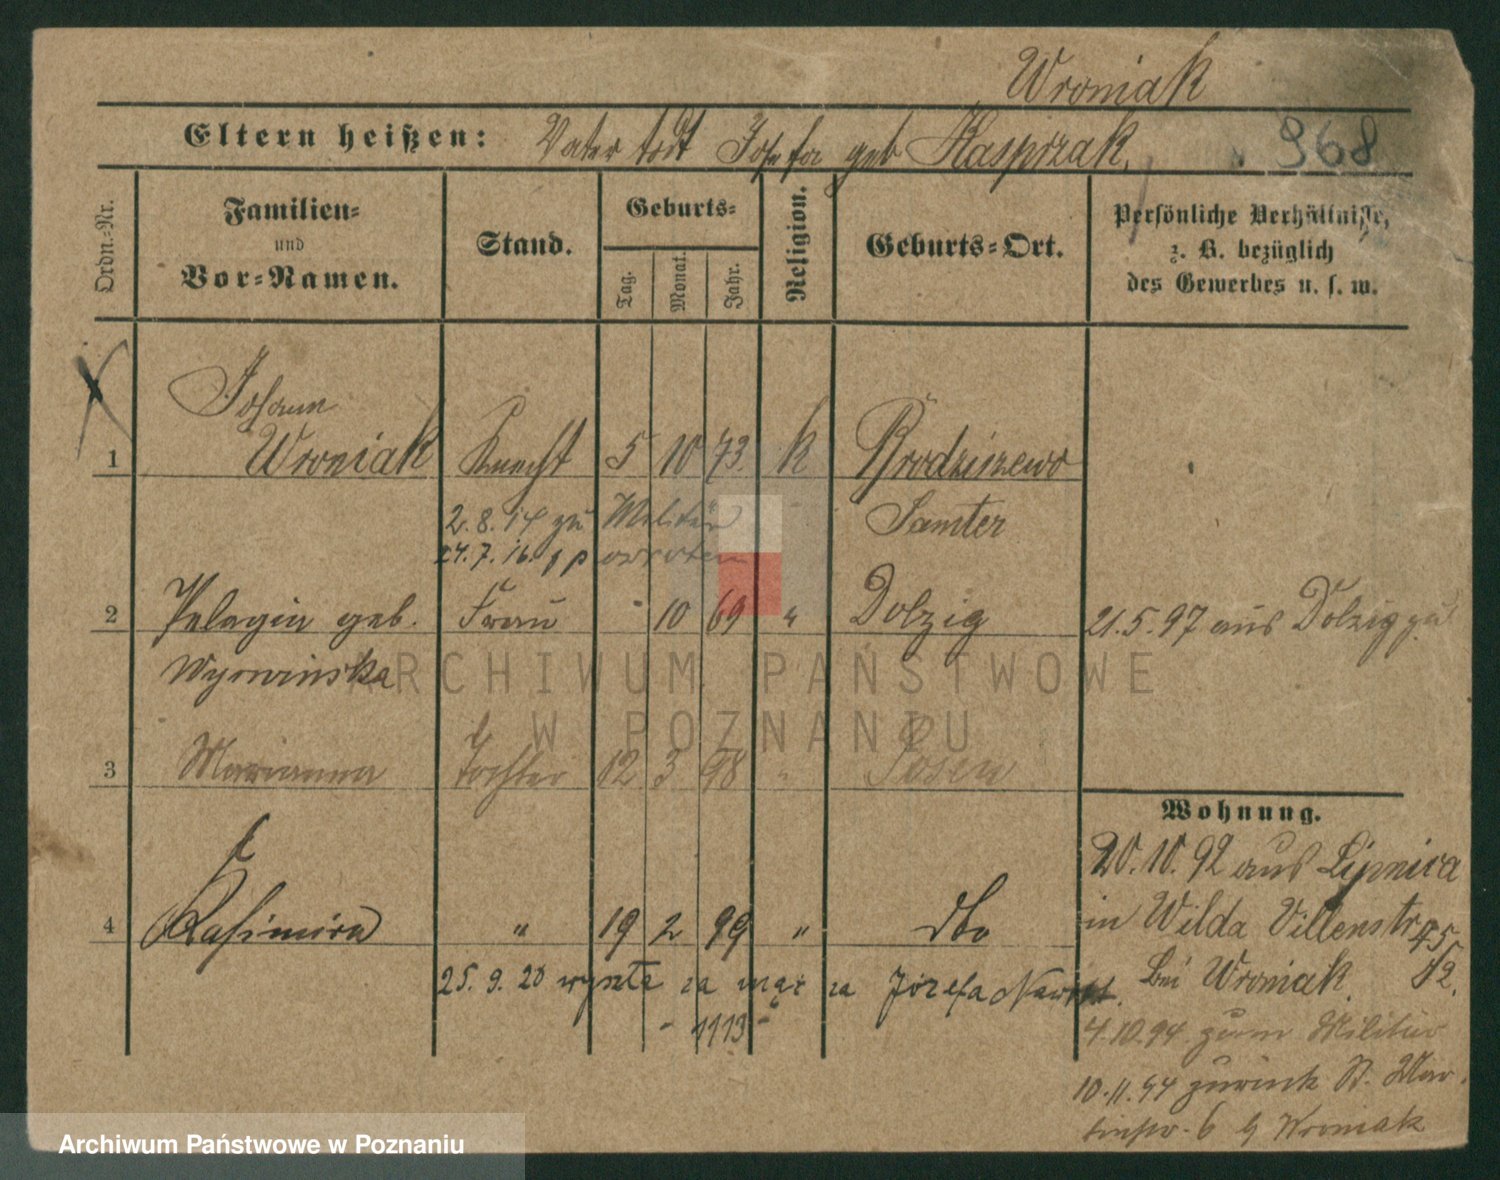 Wroniak
Eltern heißen: Vater todt Josefa geb Kasprzak. 968
Ordn.-Nr.
Familien-
und
Vor-Namen.
Stand.
Geburts-
Tag.
Monat.
Jahr.
Religion.
Geburts-Ort.
Persönliche Verhältnisse,
z. B. bezüglich
des Gewerbes u. s. w.
Johann
1 Wroniak Knecht 5 10 73 K Brodziszewo
2.8.14 zu Militär Samter
24.7.16.
2 Pelagia geb. Frau 10 69 " Dolzig 21.5.97 aus Dolzig zu
Wyrwinska
3 Marianna Tochter 12 3 98 " Posen
4 Kasimira " 19 2 99 " dto
25.9.20 wyszła za mąż za Józefa
- 1113 -
Wohnung.
20.10.92 aus Lipnica
in Wilda Villenstr
bei Wroniak.
4.10.94 zum Militär
10.11.94 zurück St. Mar
tinstr. 6 b Wroniak
ARCHIWUM PAŃSTWOWE
W POZNANIU
Archiwum Państwowe w Poznaniu